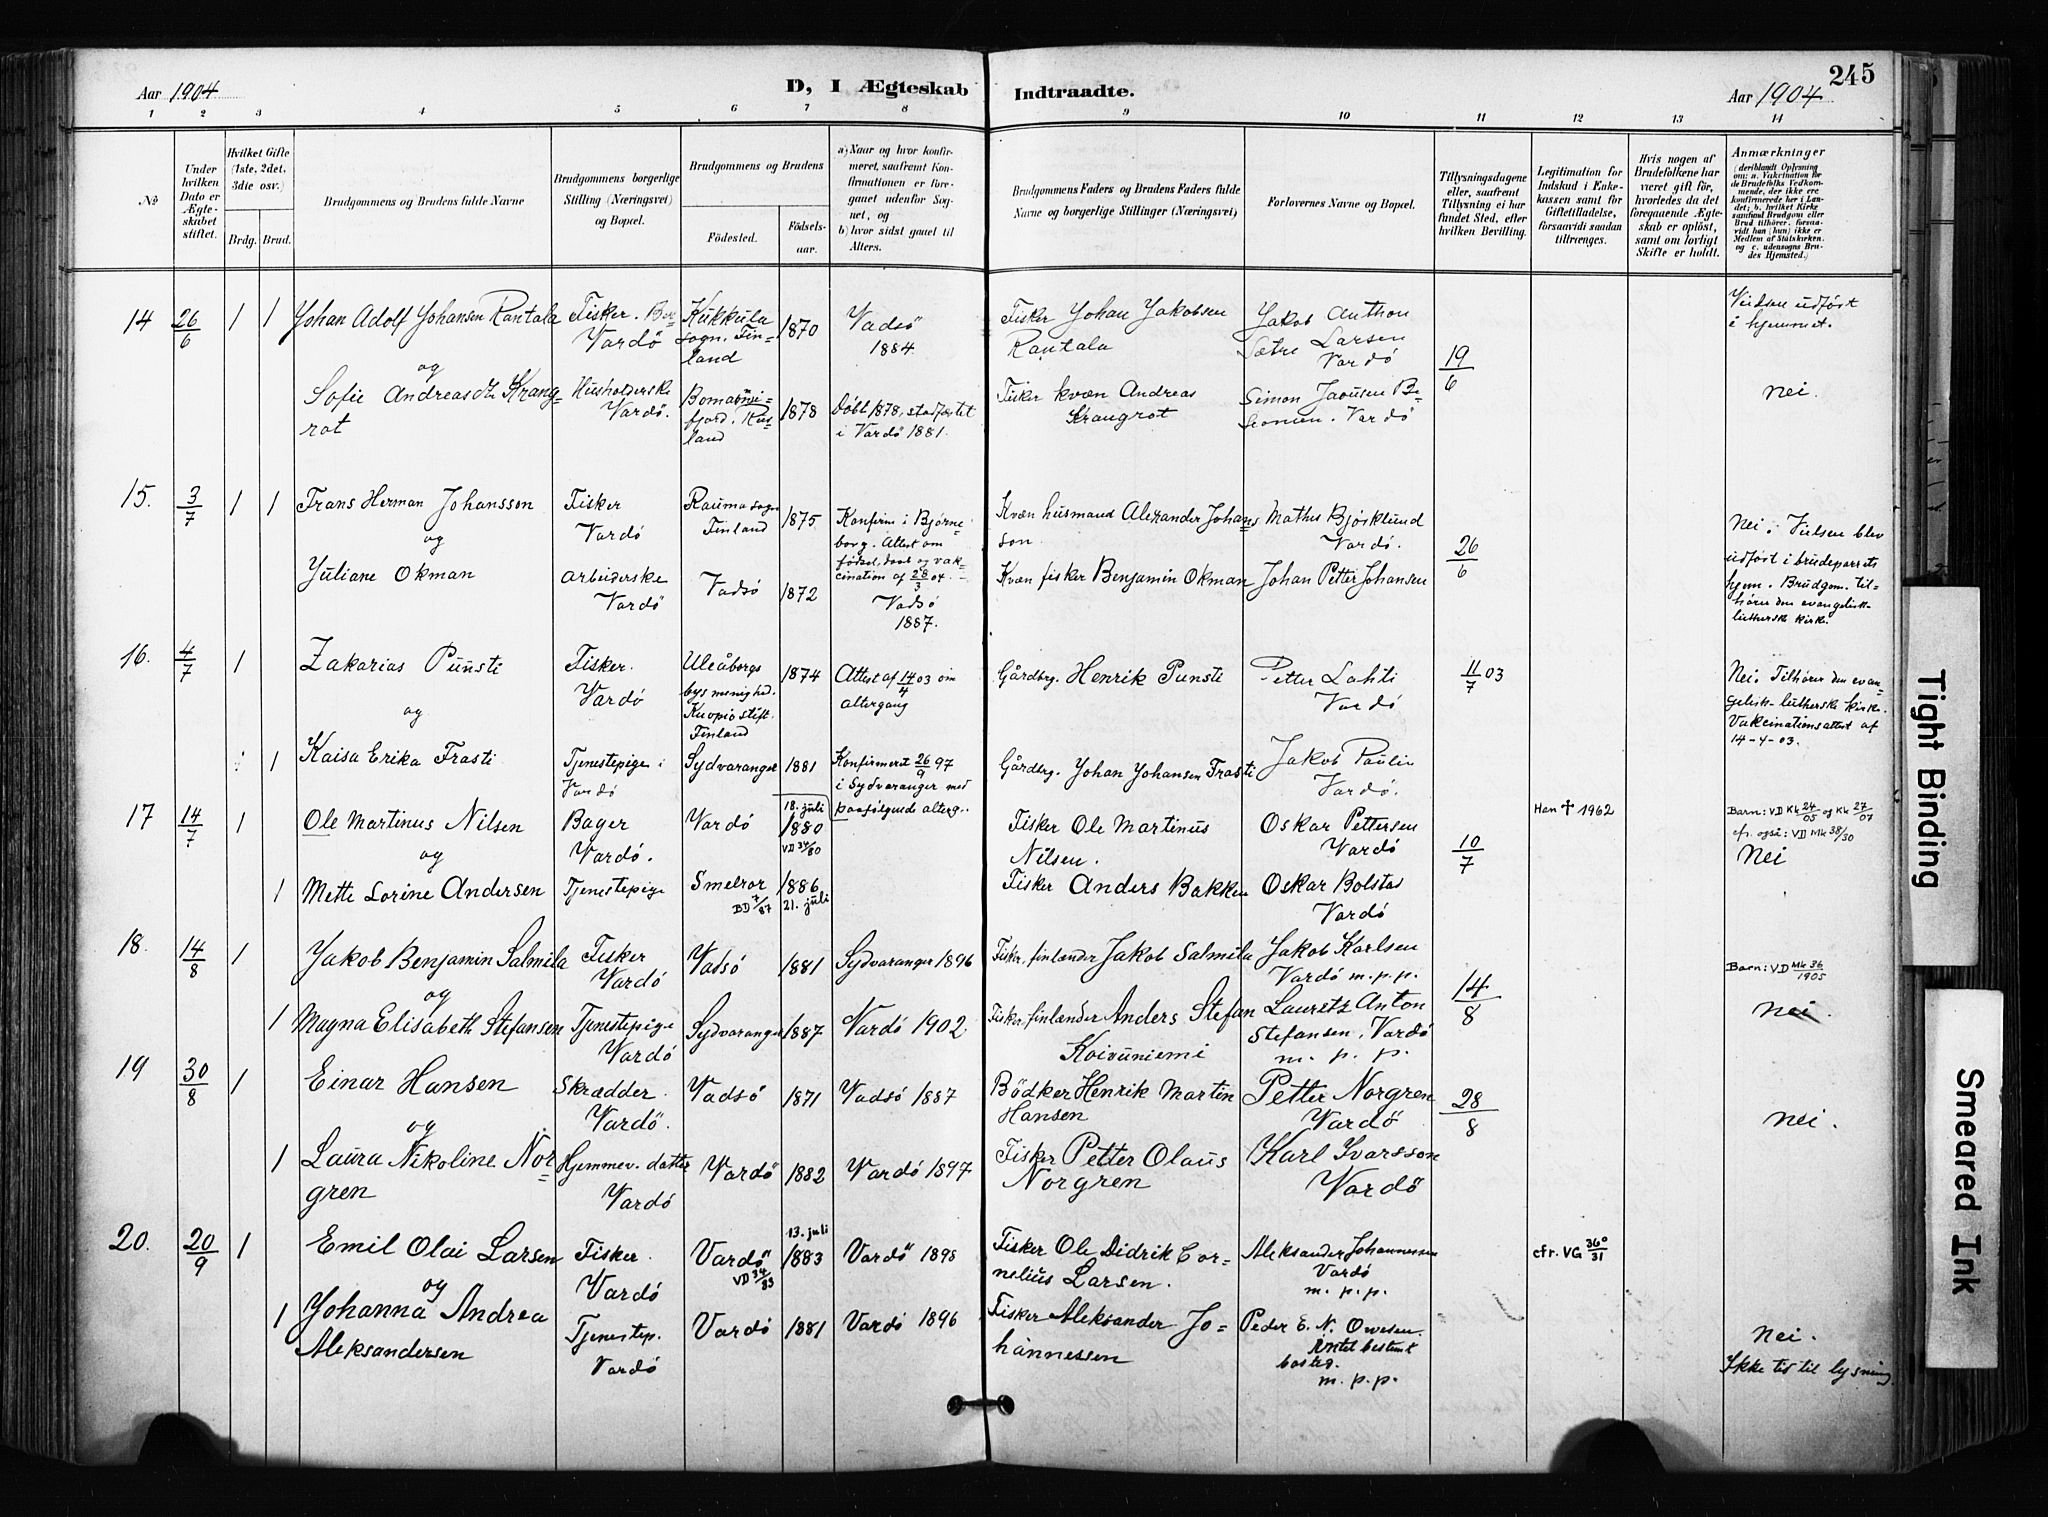 Aar 1904
D, I Ægteskab Indtraadte.
Aar 1904
245
1 2 3 4 5 6 7 8 9 10 11 12 13 14
No
Under hvilken Dato er Ægteskabet stiftet.
Hvilket Gifte (1ste, 2det, 3die osv.)
Brdg. Brud.
Brudgommens og Brudens fulde Navne
Brudgommens borgerlige Stilling (Næringsvei) og Bopæl.
Brudgommens og Brudens
Fødested.
Fødselsaar.
a) Naar og hvor konfirmeret, saafremt Konfirmationen er foregaaet udenfor Sognet, og
b) hvor sidst gaaet til Alters.
Brudgommens Faders og Brudens Faders fulde Navne og borgerlige Stillinger (Næringsvei)
Forlovernes Navne og Bopæl.
Tillysningsdagene eller, saafremt Tillysning ei har fundet Sted, efter hvilken Bevilling.
Legitimation for Indskud i Enkekassen samt for Giftetilladelse, forsaavidt saadan tiltrænges.
Hvis nogen af Brudefolkene har været gift før, hvorledes da det foregaaende Ægteskab er opløst, samt om lovligt Skifte er holdt.
Anmærkninger
(deriblandt Oplysning om: a. Vakcination for de Brudefolks Vedkommende, der ikke ere konfirmerede her i Landet; b. hvilket Kirkesamfund Brudgom eller Brud tilhører, forsaavidt han (hun) ikke er Medlem af Statskirken, og c. udensogns Brudes Hjemsted.)
14 26/6 1 1
Johan Adolf Johansen Rantala
og
Sofie Andreasdtr Krangrot
Fisker.
Vardö
Husholderske
Vardö.
Kukkula
sogn. Finland
1870
Vadsö
1884
1878
Döbt 1878, stadfæstet
i Vardö 1881.
Fisker Johan Jakobsen
Rantala
Fisker kvæn Andreas
Krangrot
Jakob Anthon
Sætre Larsen
Vardö
Vardö
19/6
Vielsen udført
i hjemmet.
nei.
15. 3/7 1 1
Frans Herman Johansson
og
Juliane Okman
Fisker
Vardö
Arbeiderske
Vardö
Rauma sogn
Finland
Vadsö
1875
1872
Konfirm i Bjørneborg. Attest om
fødsel, daab og vakcination af 28/3 04.
Vadsö
1887.
Kvæn husmand Alexander Johansson.
Kvæn fisker Benjamin Okman
Mathis Bjørklund
Vardö.
Johan Petter Johansen
26/6
Nei. Vielsen blev
udført i brudeparrets
hjem. Brudgom. tilhører den evangelisklutherske kirke.
16. 4/7 1
Zakarias Punsti
og
1 Kaisa Erika Frasti
Fisker.
Vardö
Tjenestepige i
Vardö
Uleåborgs
bys menighed.
Kuopio stift.
Finland
Sydvaranger
1874
1881
Attest af 14/4 03 om
altergang
Konfirmeret 26/9 97
i Sydvaranger med
paafølgende alterg.
Gårdbr. Henrik Punsti
Gårdbrg. Johan Johansen Frasti
Petter Lahti
Vardö
Jakob Paulin
Vardö.
11/7 03
Nei. Tilhører den evangelisk-lutherske kirke.
Vakcinationsattest af
14-4-03.
17 14/7 1
Ole Martinus Nilsen
og
1 Mette Lorine Andersen
Bager
Vardö.
Tjenestepige
Vardö
Smelror
BD 7/87
18. juli
1880
VD 34/80
1886
21. juli
Fisker Ole Martinus
Nilsen.
Fisker Anders Bakken
Oskar Pettersen
Vardö
Oskar Bolstad
Vardö
10/7
Han † 1962
Barn: VD Kk 24/05 og Kk 27/07
cfr. også: VD Mk 38/30
Nei
18. 14/8 1
Jakob Benjamin Salmila
og
1 Magna Elisabeth Stefansen
Fisker
Vardö
Tjenestepige
Vardö
Vadsö
Sydvaranger
1881
1887
Sydvaranger 1896
Vardö 1902.
Fisker, finlænder Jakob Salmila
Fisker, finlænder Anders Stefan
Koivuniemi
Jakob Karlsen
Vardö m.p.p.
Lauritz Anton
Stefansen, Vardö
m. p. p.
14/8
Barn: VD Mk 36/1905
nei.
19 30/8 1
Einar Hansen
og
1 Laura Nikoline Norgren
Skrædder
Vardö.
Hjemmev. datter
Vardö
Vadsö
Vardö
1871
1882
Vadsö 1887
Vardö 1897
Bödker Henrik Martin
Hansen
Fisker Petter Olaus
Norgren
Petter Norgren
Vardö
Karl Ivarsson
Vardö
28/8
nei.
20. 20/9 1
Emil Olai Larsen
og
1 Johanna Andrea
Aleksandersen
Fisker.
Vardö
Tjenestep.
Vardö
Vardö
VD 34/83
Vardö
13. juli
1883
1881
Vardö 1898
Vardö 1896
Fisker Ole Didrik Cornelius Larsen.
Fisker Aleksander Johannessen
Aleksander Johannessen
Vardö
m.p.p.
Peder E. N. Ovesen.
bosted.
m. p. p.
cfr. VG 360/31
nei.
Ikke tid til lysning
Tight Binding
Smeared Ink